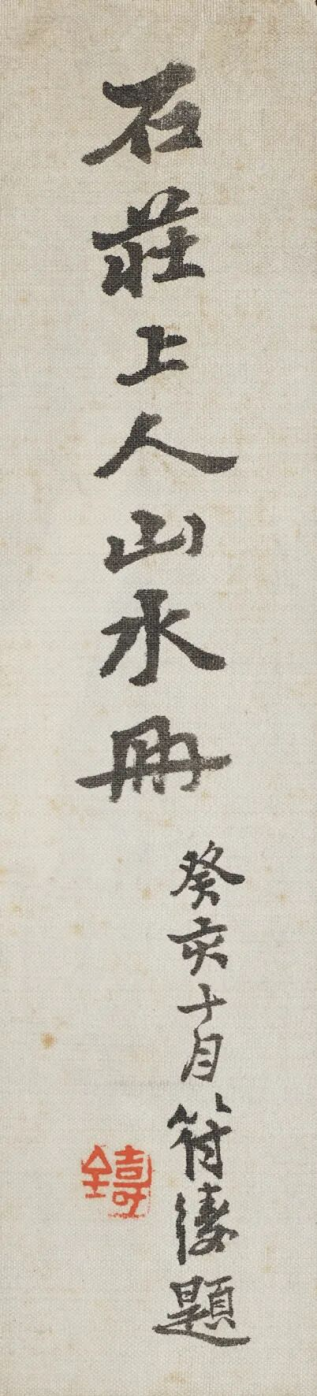 石莊上人山水冊
癸亥十月符鑄題
鑄